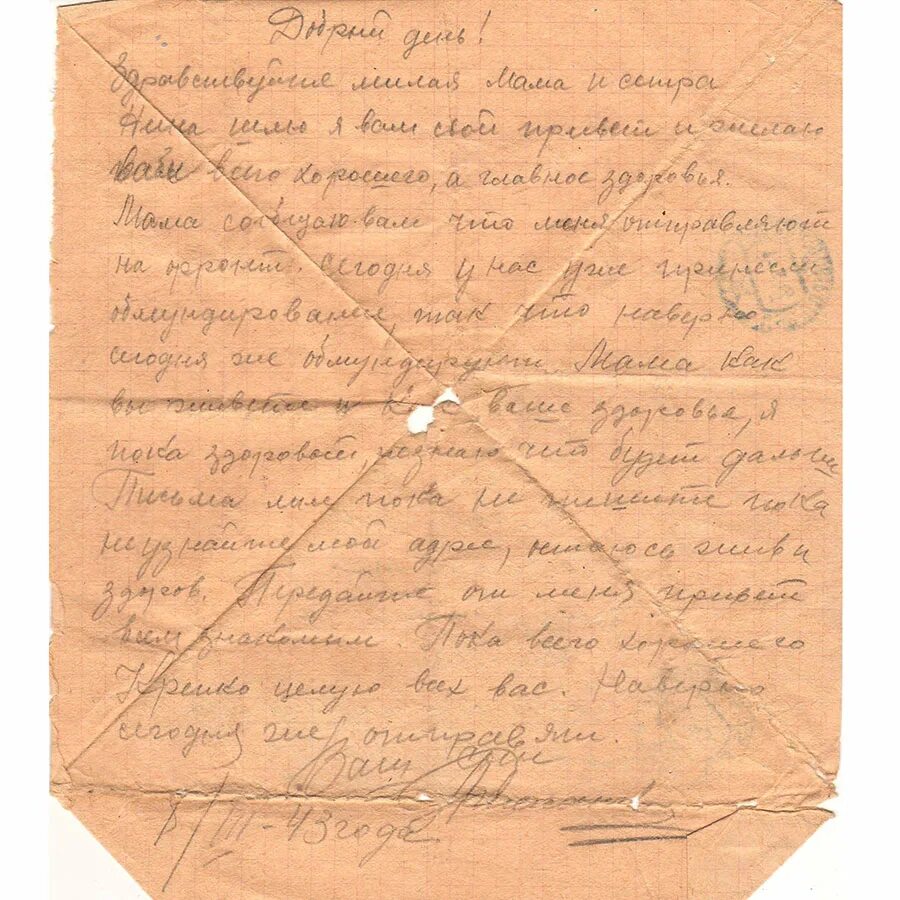 Добрый день!
Здравствуйте милая Мама и сестра
Нина шлю я вам свой привет и желаю
вам всего хорошего, а главное здоровья.
Мама сообщаю вам что меня отправляют
на фронт. Сегодня у нас уже принесли
обмундирование, так что наверно
сегодня же обмундируют. Мама как
вы живете и как ваше здоровье, я
пока здоровый, незнаю что будет дальше
Письма мне пока не пишите пока
не узнайте мой адрес, остаюсь жив и
здоров. Передайте от меня привет
всем знакомым. Пока всего хорошего
Крепко целую всех вас. Наверно
сегодня же отправят.
Ваш сын
/III-43 года.